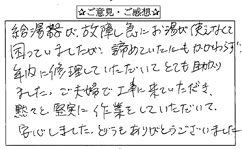 ☆ご意見・ご感想☆
給湯器が、故障し急にお湯が使えなくて
困っていましたが、諦めていたにもかかわらず
年内に修理していただいてとても助かり
ました。ご夫婦で工事に来ていただき、
黙々と堅実に作業をしていただいて、
安心しました。どうもありがとうございました